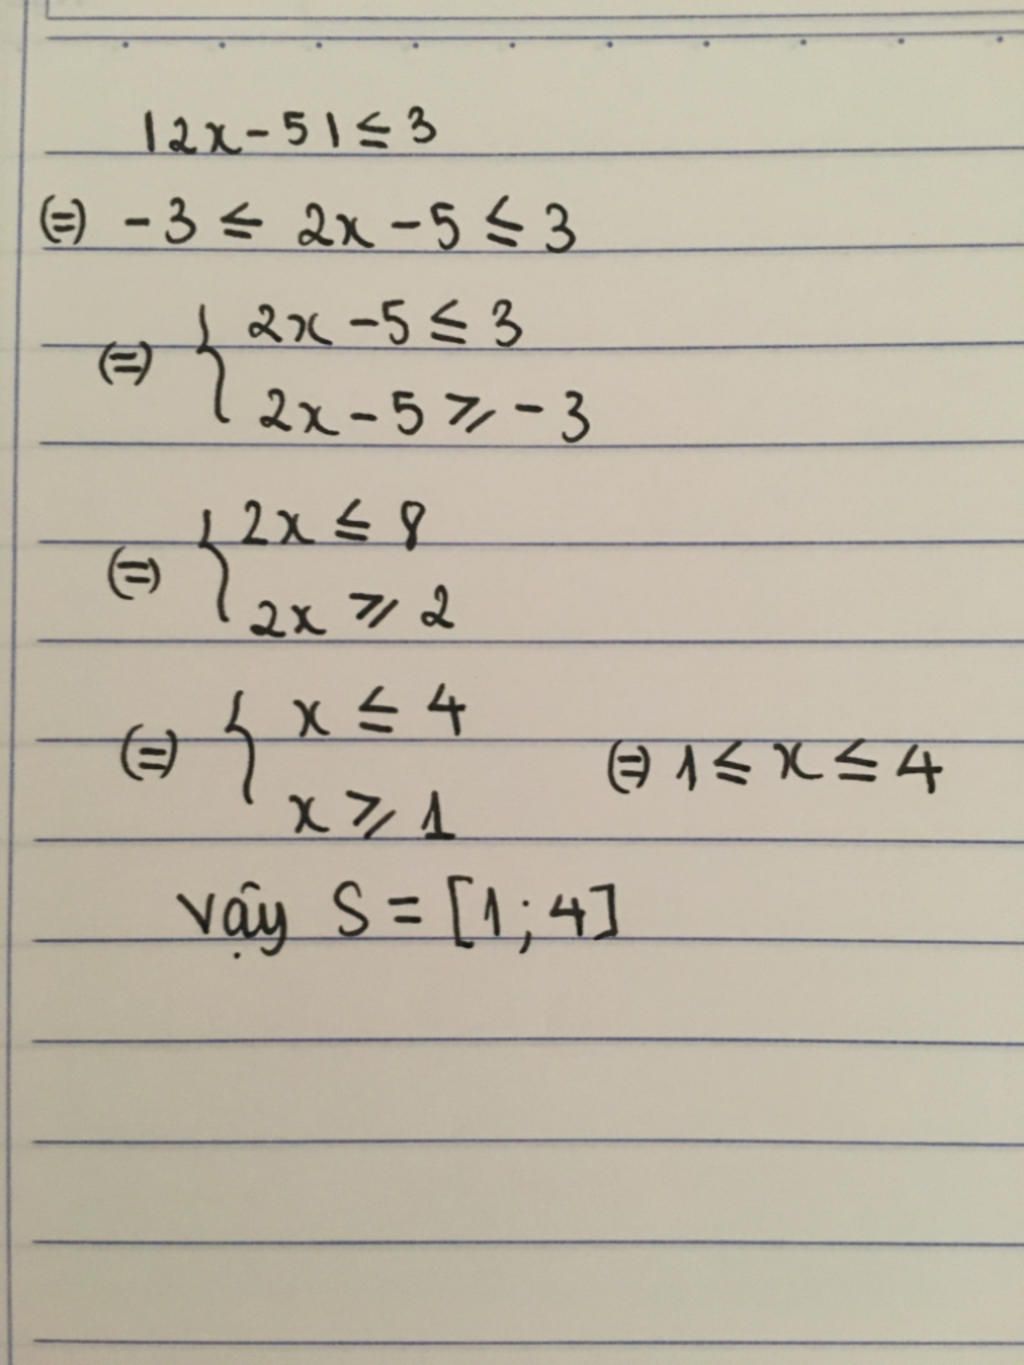 |2x-5| ≤ 3
(=) -3 ≤ 2x-5 ≤ 3
(=) { 2x-5 ≤ 3
2x-5 ⩾ -3
(=) { 2x ≤ 8
2x ⩾ 2
(=) { x ≤ 4
x ⩾ 1
(=) 1 ≤ x ≤ 4
Vậy S = [1; 4]